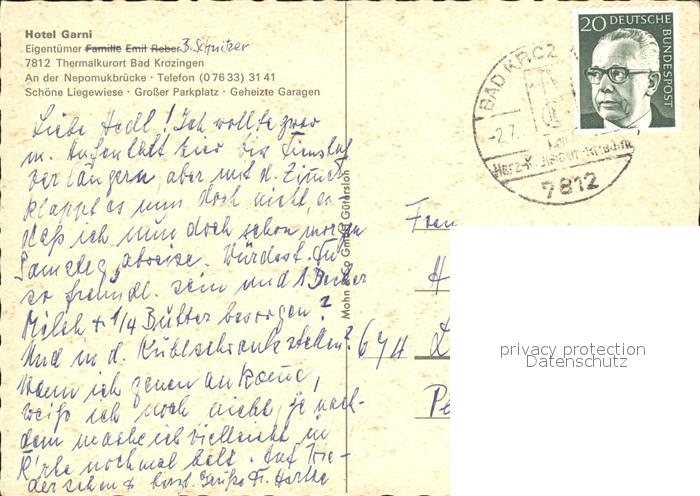 Hotel Garni
Eigentümer Familie Emil Reber J. Schnitzer
7812 Thermalkurort Bad Krozingen
An der Nepomukbrücke · Telefon (0 76 33) 31 41
Schöne Liegewiese · Großer Parkplatz · Geheizte Garagen
20 DEUTSCHE BUNDESPOST
BAD KROZ
-2.7.
7812
Mohn & Co GmbH Gütersloh
Liebe Hedl! Ich wollte zwar
m. Aufenthalt hier bis Dienstag
verlängern, aber mit d. Zimmer
klappt es nun doch nicht, so
daß ich nun doch schon morgen
Samstag abreise. Würdest Du
so freundl. sein und 1 Becher
Milch + 1/4 Butter besorgen?
Und in d. Kühlschrank stellen?
Wann ich genau ankomme,
weiß ich noch nicht, je nach-
dem mache ich vielleicht in
K'rhe nochmal halt. Auf Wie-
dersehen & herzl. Grüße
Frau
H
674 L
Pe
privacy protection
Datenschutz